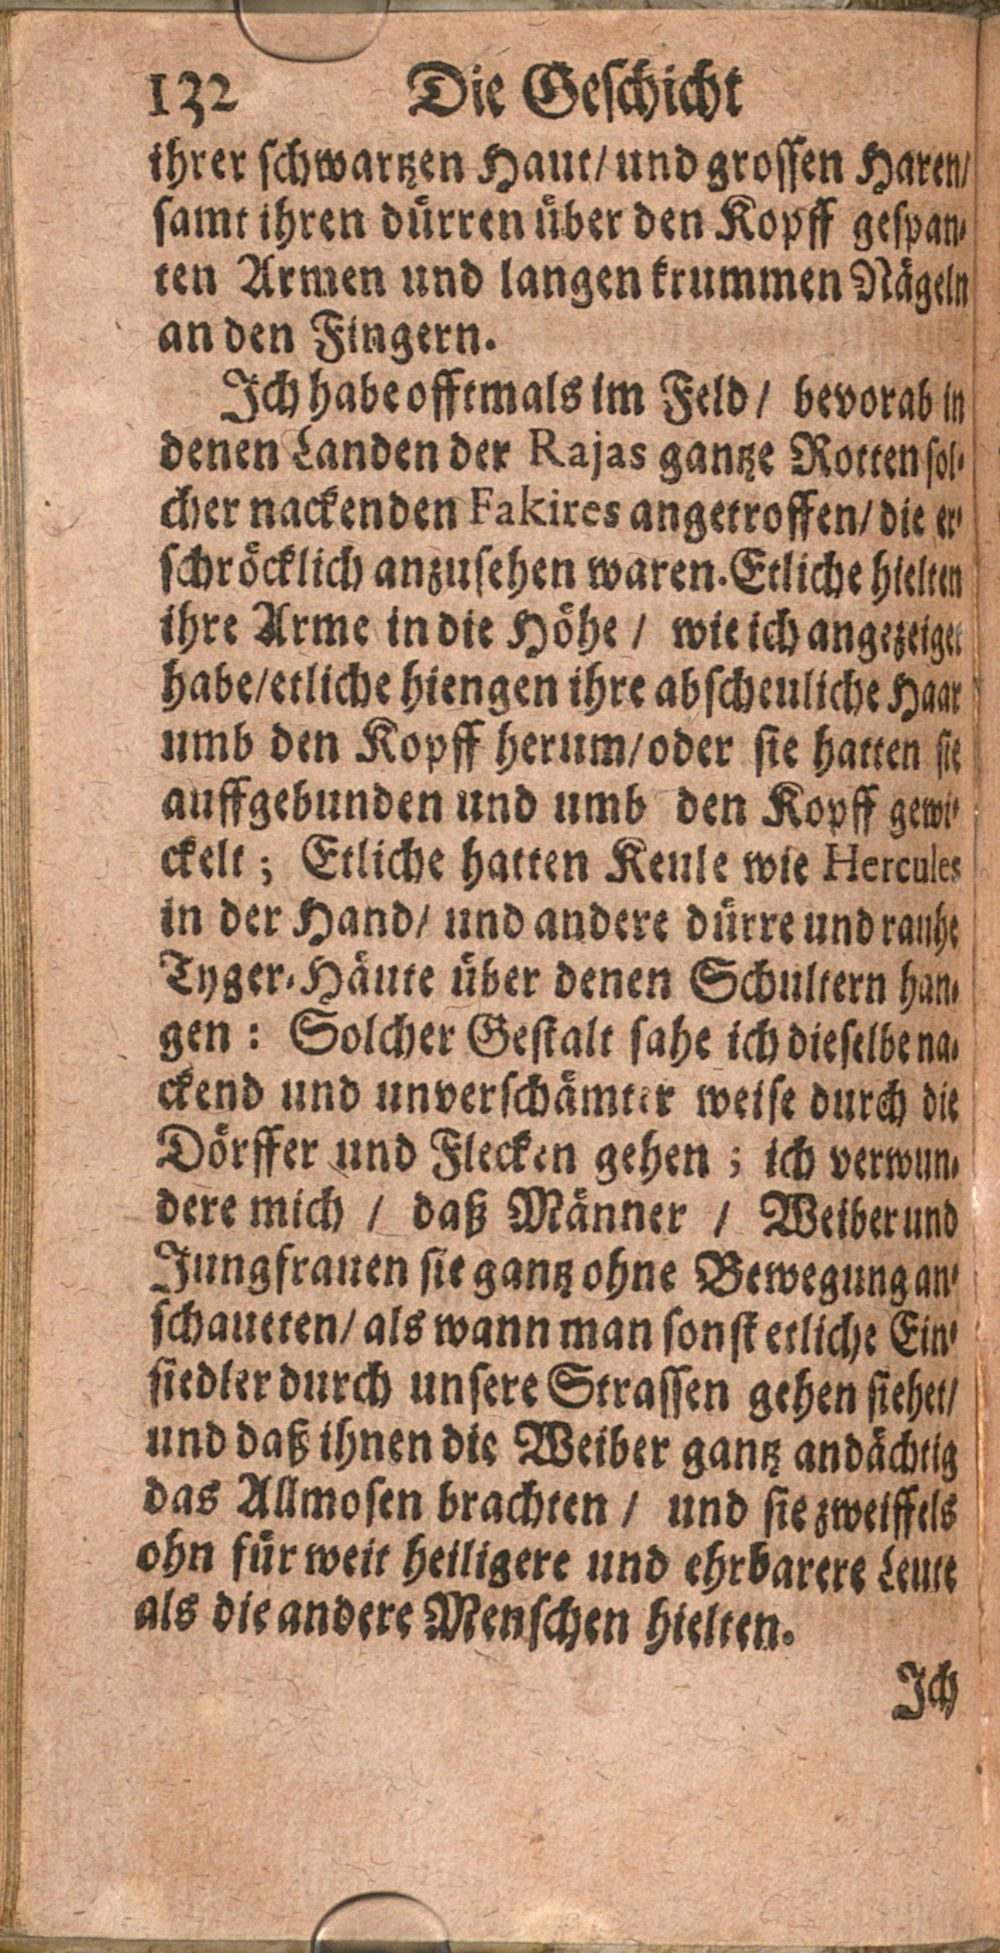 132 Die Geschicht
ihrer schwartzen Haut/ und grossen Haren/
samt ihren dürren über den Kopff gespan-
ten Armen und langen krummen Nägeln
an den Fingern.
Ich habe offtmals im Feld / bevorab in
denen Landen der Rajas gantze Rotten sol-
cher nackenden Fakires angetroffen/ die er-
schröcklich anzusehen waren. Etliche hielten
ihre Arme in die Höhe / wie ich angezeiget
habe/ etliche hiengen ihre abscheuliche Haar
umb den Kopff herum/ oder sie hatten sie
auffgebunden und umb den Kopff gewi-
ckelt ; Etliche hatten Keule wie Hercules
in der Hand/ und andere dürre und rauhe
Tyger-Häute über denen Schultern han-
gen : Solcher Gestalt sahe ich dieselbe na-
ckend und unverschämter weise durch die
Dörffer und Flecken gehen ; ich verwun-
dere mich / daß Männer / Weiber und
Jungfrauen sie gantz ohne Bewegung an-
schaueten/ als wann man sonst etliche Ein-
siedler durch unsere Strassen gehen siehet/
und daß ihnen die Weiber gantz andächtig
das Allmosen brachten / und sie zweiffels
ohn für weit heiligere und ehrbarere Leute
als die andere Menschen hielten.
Ich